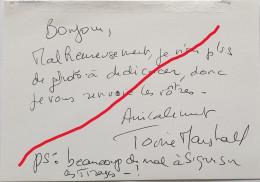 Bonjour,
Malheureusement, je n'ai plus
de photo à dédicacer, donc
je vous renvoie les vôtres.
Amicalement
Tonie Marshall
PS: beaucoup de mal à signer sur
les tirages - !